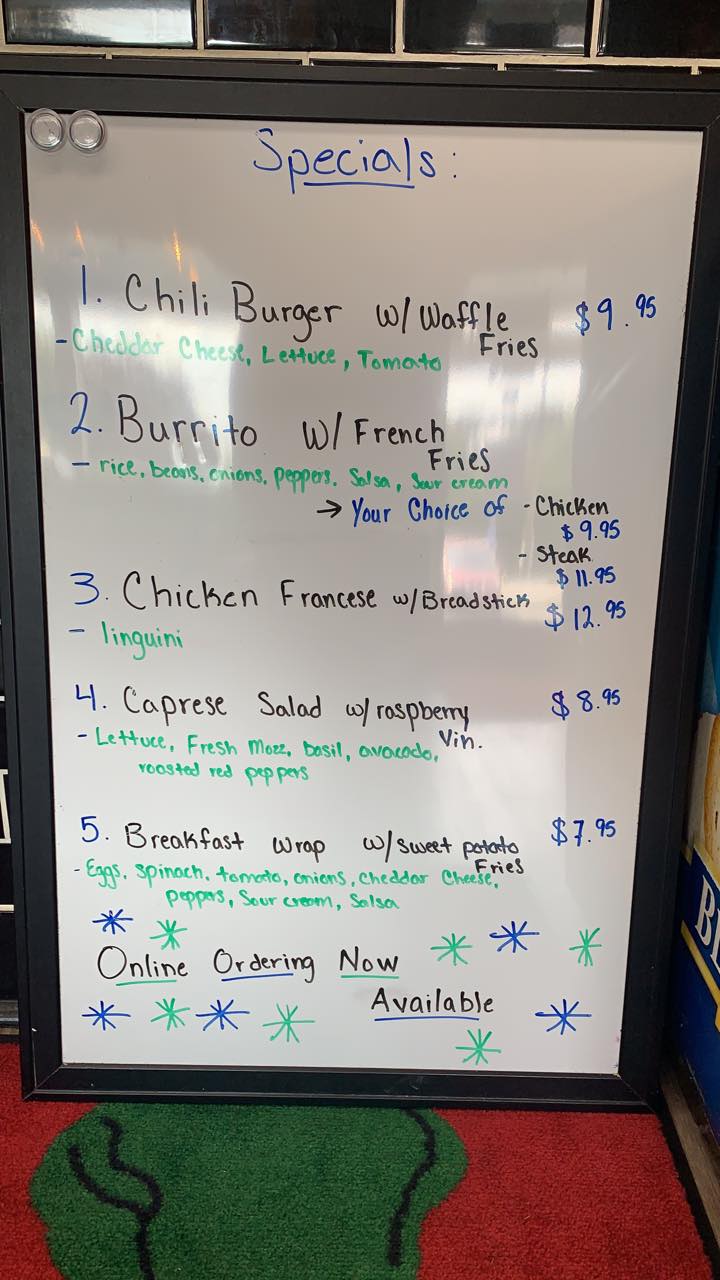 Specials:
1. Chili Burger w/ Waffle Fries $9.95
- Cheddar Cheese, Lettuce, Tomato
2. Burrito w/ French Fries
- rice, beans, onions, peppers, Salsa, Sour cream
→ Your Choice of - Chicken
$9.95
- Steak
$11.95
3. Chicken Francese w/ Breadstick $12.95
- linguini
4. Caprese Salad w/ raspberry Vin. $8.95
- Lettuce, Fresh Mozz, basil, avocado,
roasted red peppers
5. Breakfast Wrap w/ sweet potato Fries $7.95
- Eggs, spinach, tomato, onions, cheddar cheese,
peppers, Sour cream, Salsa
Online Ordering Now
Available